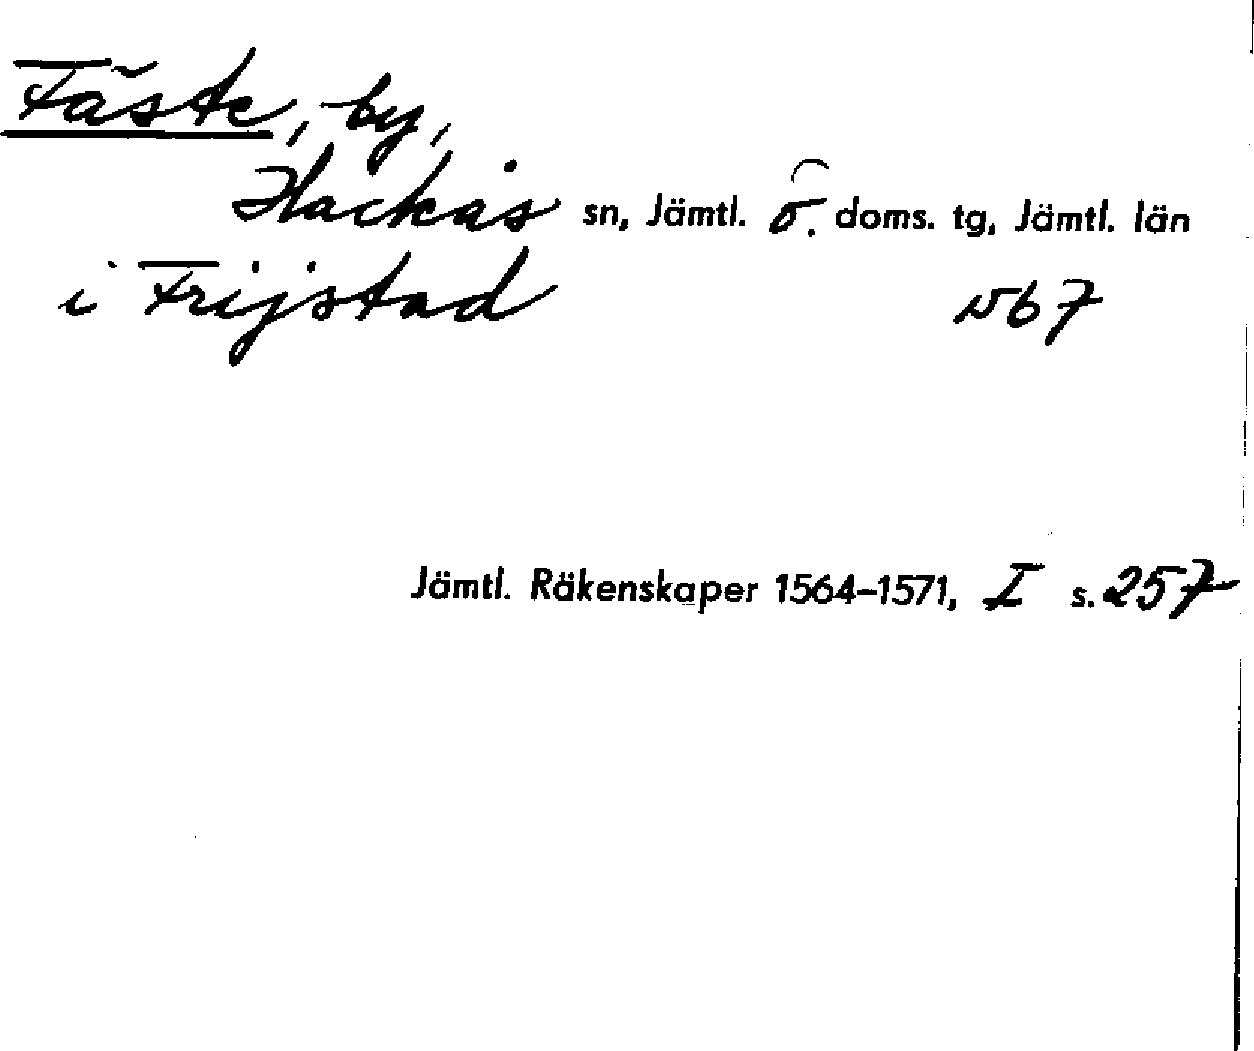 Fäste, by,
Hackås sn, Jämtl. ö. doms. tg, Jämtl. län
i Frijstad 1567
Jämtl. Räkenskaper 1564–1571, I s. 257